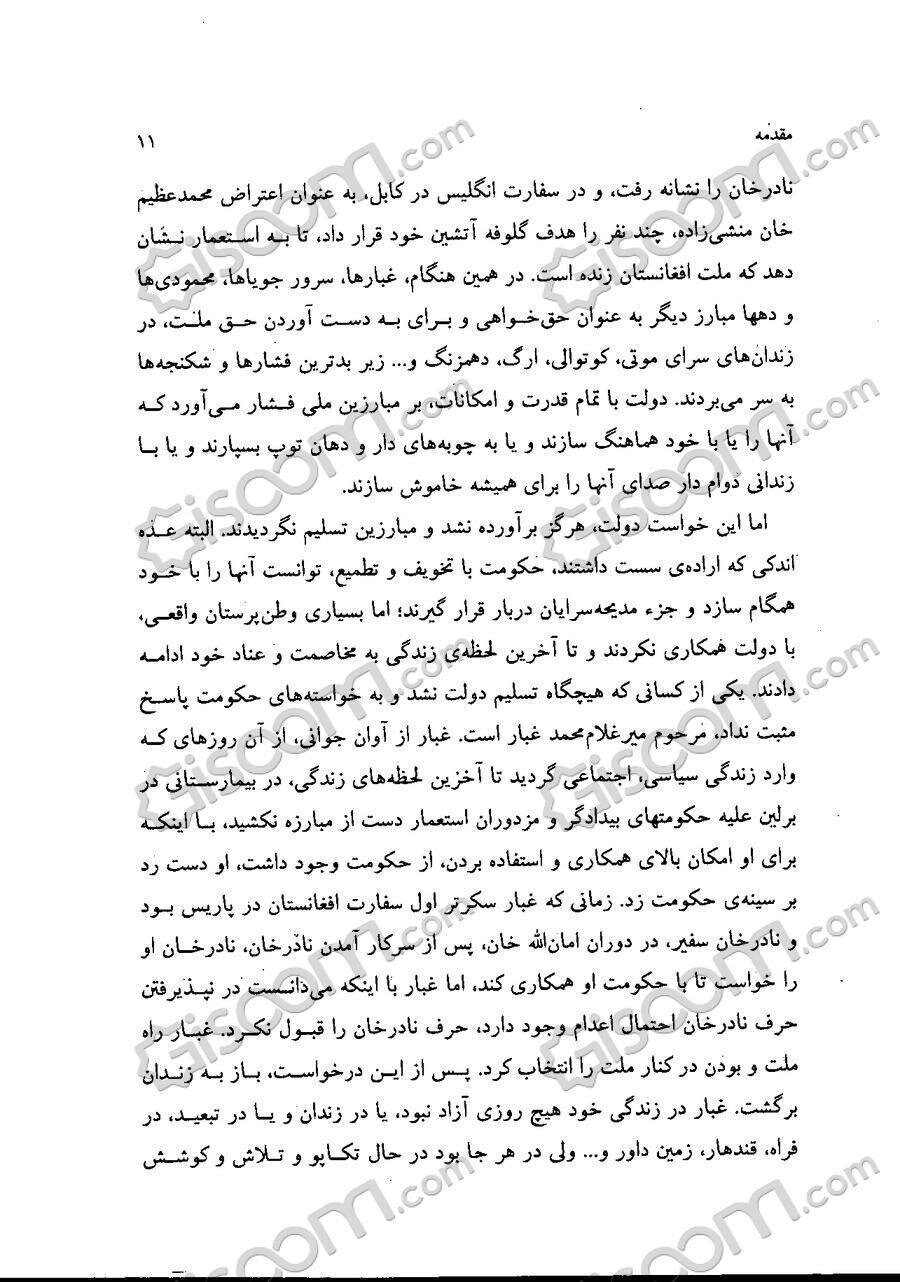 مقدمه ۱۱
نادرخان را نشانه رفت، و در سفارت انگلیس در کابل، به عنوان اعتراض محمدعظیم
خان منشی‌زاده، چند نفر را هدف گلوفه آتشین خود قرار داد، تا به استعمار نشان
دهد که ملت افغانستان زنده است. در همین هنگام، غبارها، سرور جویاها، محمودی‌ها
و دهها مبارز دیگر به عنوان حق‌خواهی و برای به دست آوردن حق ملت، در
زندان‌های سرای موتی، کوتوالی، ارگ، دهمزنگ و... زیر بدترین فشارها و شکنجه‌ها
به سر می‌بردند. دولت با تمام قدرت و امکانات، بر مبارزین ملی فشار می‌آورد که
آنها را یا با خود هماهنگ سازند و یا به چوبه‌های دار و دهان توپ بسپارند و یا با
زندانی دوام دار صدای آنها را برای همیشه خاموش سازند.
اما این خواست دولت، هرگز برآورده نشد و مبارزین تسلیم نگردیدند. البته عده
اندکی که اراده‌ی سست داشتند، حکومت با تخویف و تطمیع، توانست آنها را با خود
همگام سازد و جزء مدیحه‌سرایان دربار قرار گیرند؛ اما بسیاری وطن‌پرستان واقعی،
با دولت همکاری نکردند و تا آخرین لحظه‌ی زندگی به مخاصمت و عناد خود ادامه
دادند. یکی از کسانی که هیچگاه تسلیم دولت نشد و به خواسته‌های حکومت پاسخ
مثبت نداد، مرحوم میرغلام‌محمد غبار است. غبار از آوان جوانی، از آن روزهای که
وارد زندگی سیاسی، اجتماعی گردید تا آخرین لحظه‌های زندگی، در بیمارستانی در
برلین علیه حکومتهای بیدادگر و مزدوران استعمار دست از مبارزه نکشید، با اینکه
برای او امکان بالای همکاری و استفاده بردن، از حکومت وجود داشت، او دست رد
بر سینه‌ی حکومت زد. زمانی که غبار سکرتر اول سفارت افغانستان در پاریس بود
و نادرخان سفیر، در دوران امان‌الله خان، پس از سرکار آمدن نادرخان، نادرخان او
را خواست تا با حکومت او همکاری کند، اما غبار با اینکه می‌دانست در نپذیرفتن
حرف نادرخان احتمال اعدام وجود دارد، حرف نادرخان را قبول نکرد. غبار راه
ملت و بودن در کنار ملت را انتخاب کرد. پس از این درخواست، باز به زندان
برگشت. غبار در زندگی خود هیچ روزی آزاد نبود، یا در زندان و یا در تبعید، در
فراه، قندهار، زمین داور و... ولی در هر جا بود در حال تکاپو و تلاش و کوشش